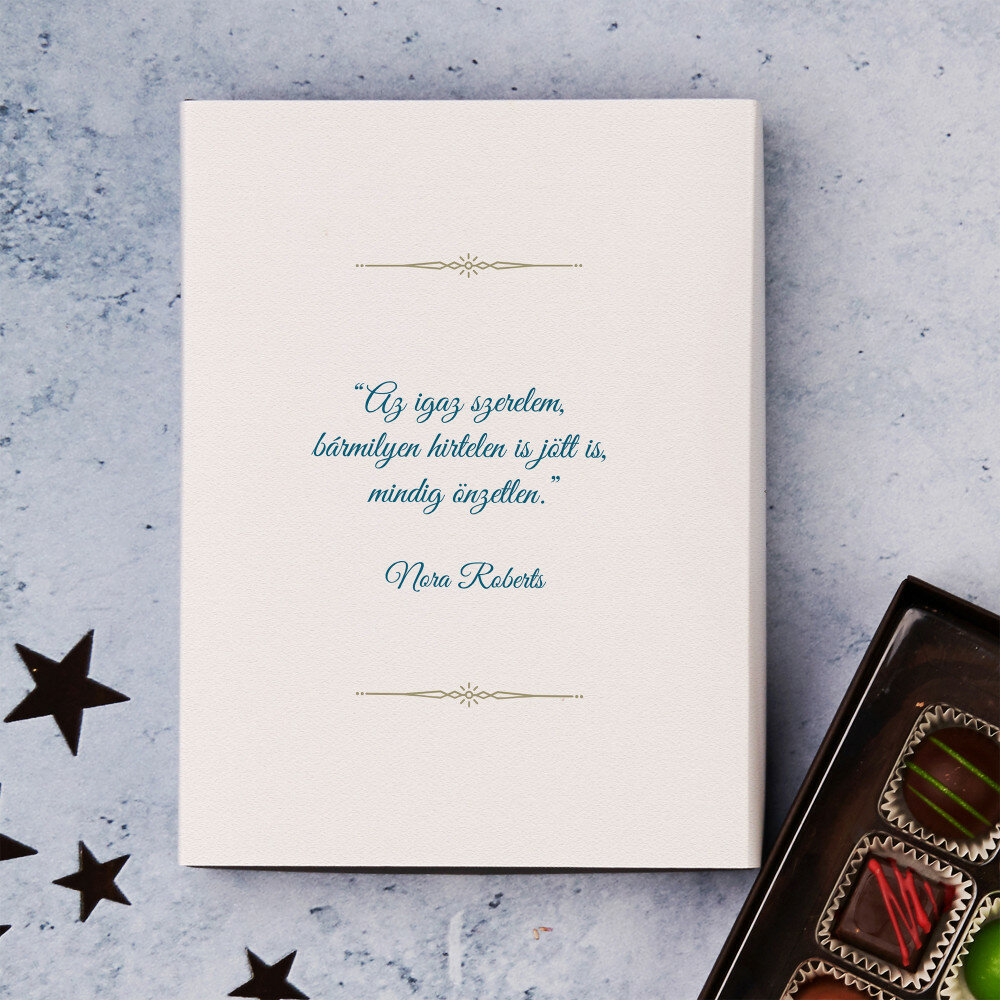 “Az igaz szerelem,
bármilyen hirtelen is jött is,
mindig önzetlen.”
Nora Roberts